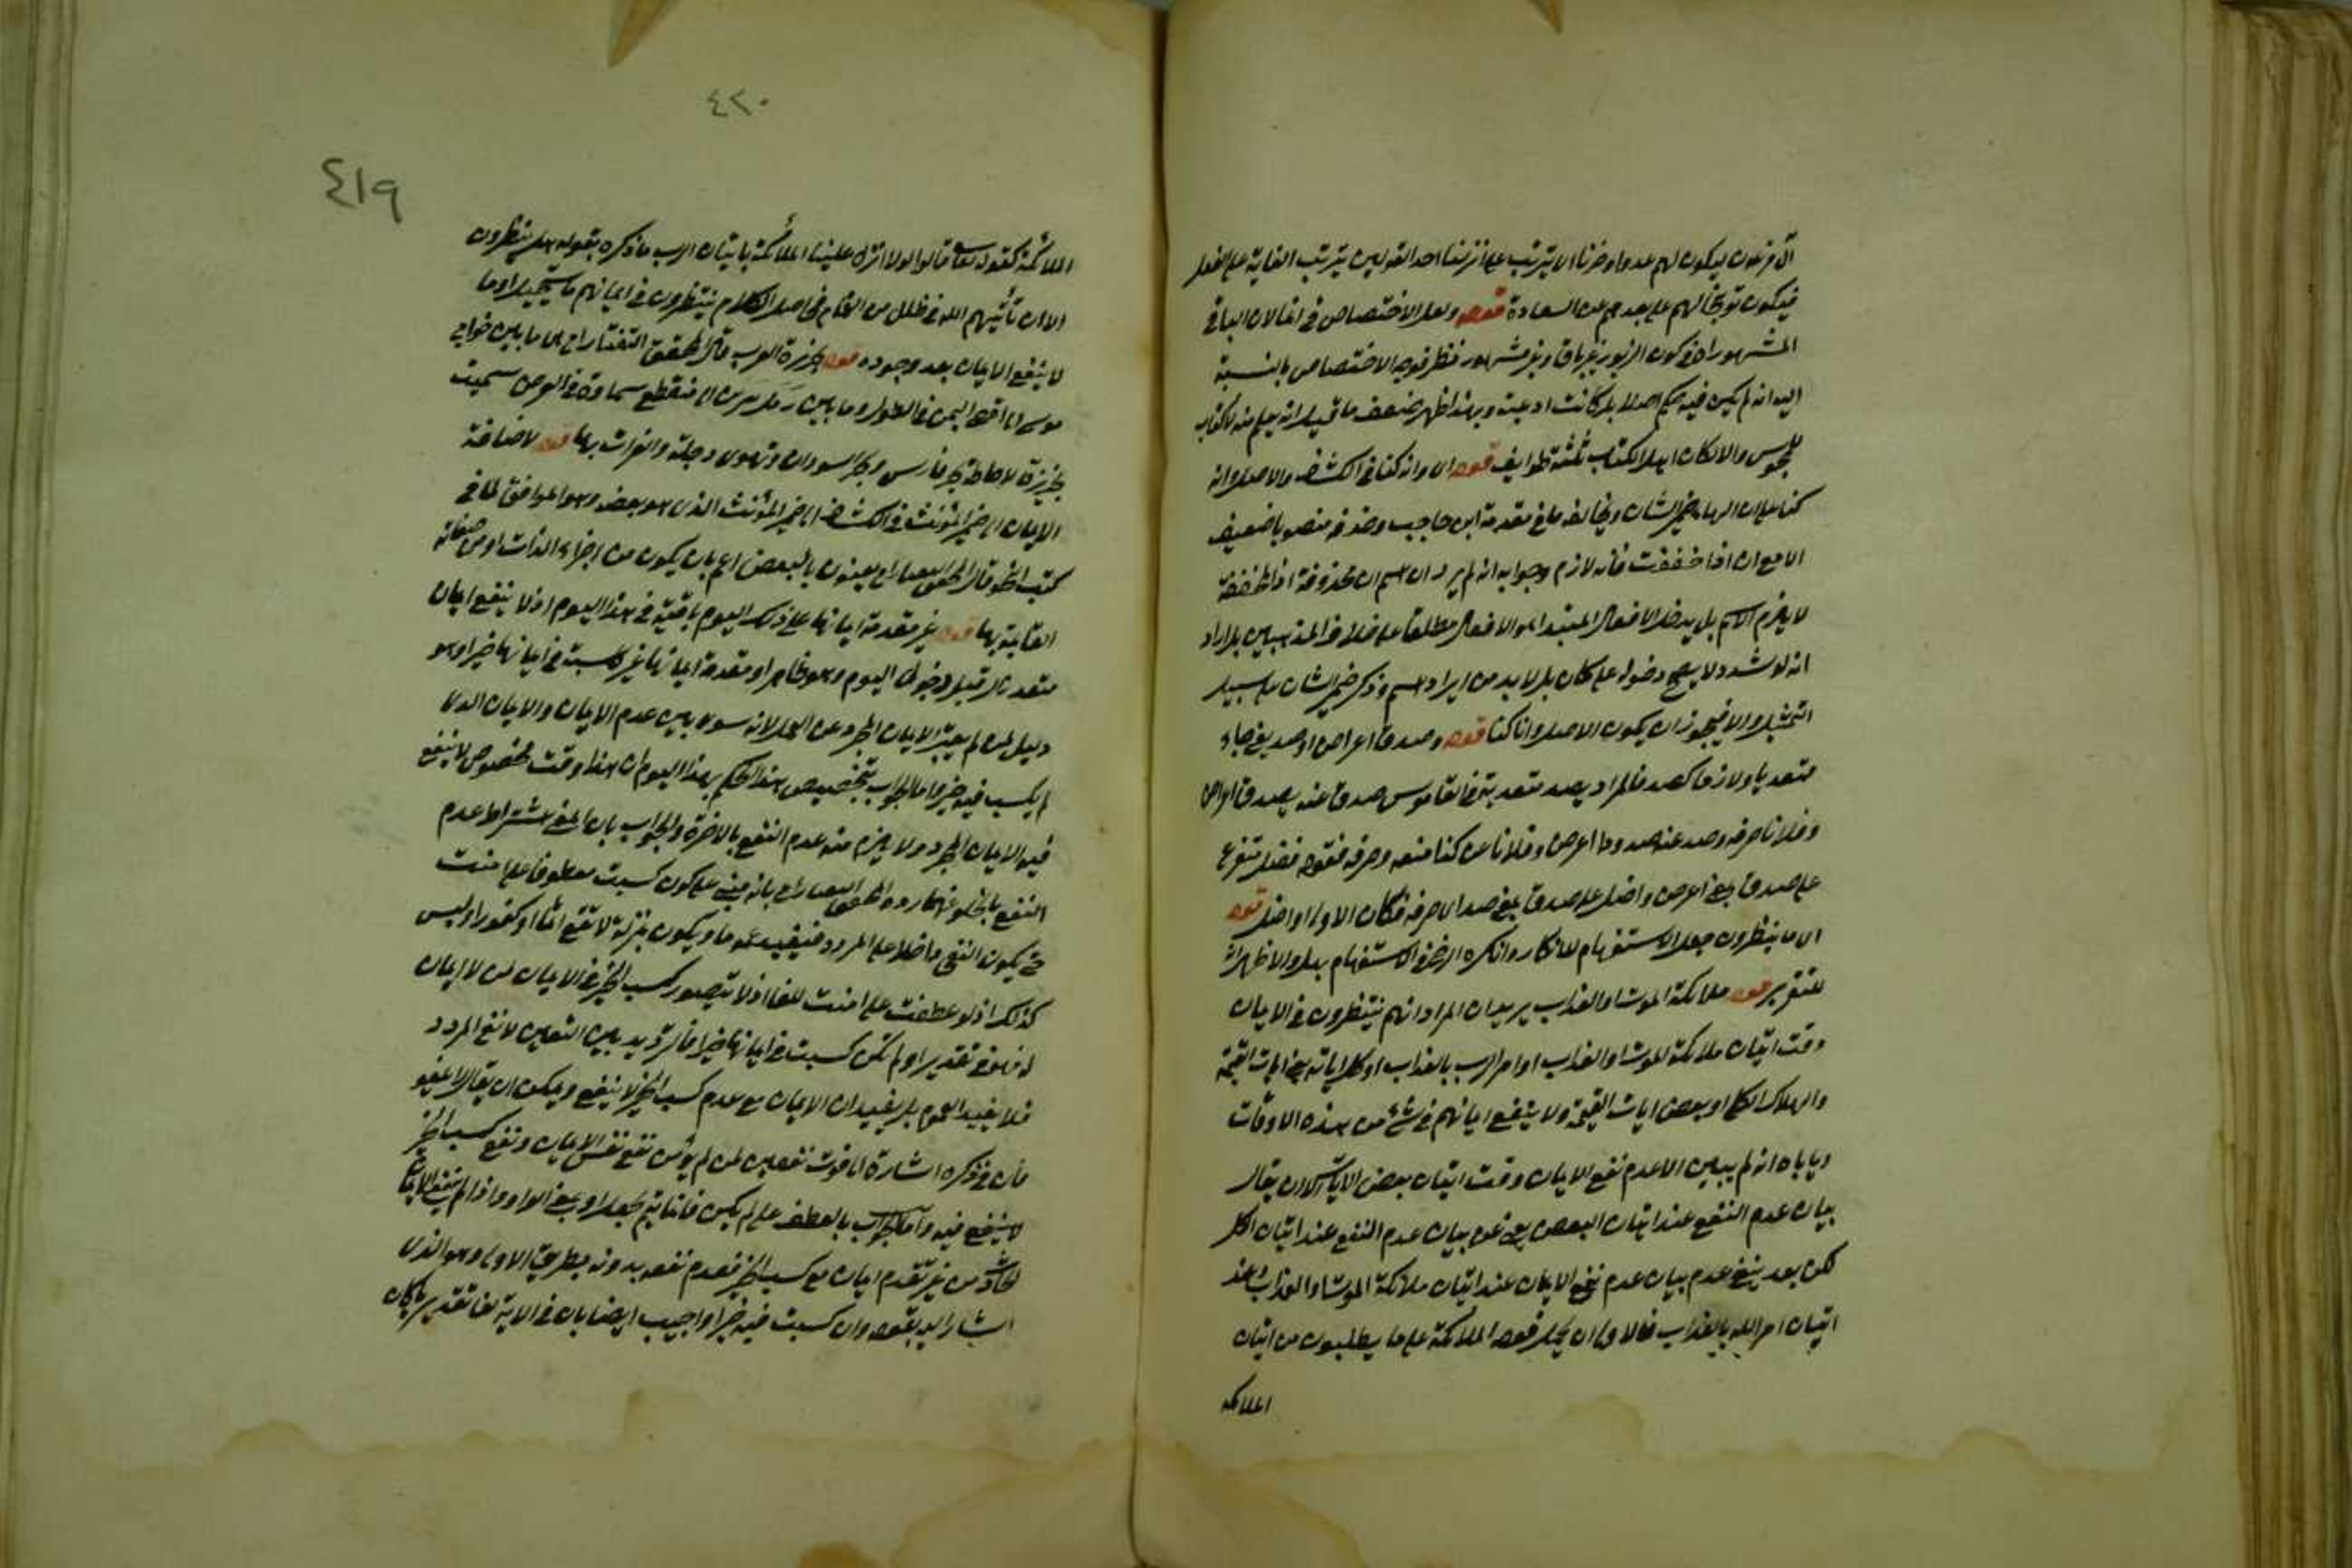 آل فرعون ليكون لهم عدوا وحزنا اي يترتب على انزالنا احد القولين ترتب الغاية على الفعل
فيكون توبيخا لهم على بعدهم عن السعادة قوله ولعل الاختصاص في انما لان الباقي
المشهور اه في كون الزبور غير باق وغير مشهور نظر فوجه الاختصاص بالنسبة
اليه انه لم يكن فيه حكم اصلا بل كانت ادعية وبهذا ظهر ضعف ما قيل انه يعلم منه لا كتاب
للمجوس والا لكان اهل الكتاب ثلثة طوايف قوله اي وانه كنا في الكشاف والاصل وانه
كنا على ان الهاء ضمير الشان ويخالفه ما في مقدمة ابن حاجب وحذفه منصوبا ضعيف
الا مع ان اذا خففت فانه لازم وجوابه انه لم يرد ان اسم ان محذوفة اذ المخففة
لا يلزم الاسم بل يدخل الافعال المبتدا او الافعال مطلقا على خلاف المذهبين بل اراد
انه لو شدد لا يصح دخوله على كان بل لا بد من ايراد اسم وذكر ضمير الشان على سبيل
التمثيل والا فيجوز ان يكون الاصل وانا كنا قوله وصدف اعرض او صد يعني جاء
متعديا ولازما كصد فالمراد بصد متعديه في القاموس صدف عنه يصدف اعرض
وفلانا صرفه وصد عنه صدودا اعرض وفلانا عن كذا منعه وصرفه فقوله فضل متفرع
على صدف بمعنى اعرض واضل على صدف بمعنى صد اي صرفه فكان الاولى او اضل قوله
اي ما ينظرون جعل الاستفهام للانكار وانكره الرضي في الاستفهام بهل والاظهر انه
للتقرير قوله ملائكة الموت او العذاب يريد ان المراد انهم ينتظرون في الايمان
وقت اتيان ملائكة الموت او العذاب او امر الرب بالعذاب او كل اياته يعني ايات القيمة
والهلاك الكل او بعض ايات القيمة ولا ينفع ايمانهم في شئ من هذه الاوقات
وياباه انه لم يبين الا عدم نفع الايمان وقت اتيان بعض الايات الا ان يقال
بيان عدم النفع عند اتيان البعض يغني عن بيان عدم النفع عند اتيان الكل
لكن بعد ينبغي عدم بيان عدم نفع الايمان عند اتيان ملائكة الموت او العذاب وعند
اتيان امر الله بالعذاب فالاولى ان يحمل قوله الملائكة على ما يطلبون من اتيان
الملائكة
٤٢٠
٤١٩
الملائكة كقوله تعالى قالوا لولا انزل علينا الملائكة باتيان الرب ما ذكره بقوله هل ينظرون
الا ان تأتيهم الله في ظلل من الغمام فحاصل الكلام ينتظرون في ايمانهم ما يستحيل او ما
لا ينفع الايمان بعد وجوده قوله جزيرة العرب قال المحقق التفتازاني هي ما بين حوالي
موسى الى اقصى اليمن في الطول وما بين رمل يبرين الى منقطع سماوة في العرض سميت
جزيرة لاحاطة بحر فارس وبحر السودان ونهري دجلة والفرات بها قوله لاضافة
الايمان الى ضمير المؤنث في الكشاف الى ضمير المؤنث الذي هو بعضه وهو الموافق لما في
كتب النحو قال المحقق التفتازاني يعنون بالبعض اعم بان يكون من اجزاء الذات او من صفاته
القايمة بها قوله غير مقدمة ايمانها على ذلك اليوم باقية في هذا اليوم اذ لا ينفع ايمان
متعد زال قبل دخول اليوم وهو ظاهر او مقدمة ايمانها غير كاسبة في ايمانها خيرا وهو
دليل لمن لم يعتبر الايمان المجرد عن العمل لانه سوى بين عدم الايمان والايمان الذي
لم يكسب فيه خير واما الجواب بتخصيص هذا الحكم بهذا اليوم اي هذا وقت مخصوص لا ينفع
فيه الايمان المجرد ولا يلزم منه عدم النفع بالاخرة والجواب بان المعنى اشتراط عدم
النفع بالخلو عنهما رده المحقق التفتازاني بانه مبني على كون كسبت معطوفا على امنت
حتى يكون النفي داخلا على المردد فيفيد عموما ويكون بمنزلة لا تطع اثما او كفورا وليس
كذلك اذ لو عطفت على امنت للغا اذ لا يتصور كسب الخير في الايمان لمن لا ايمان
له فهو في تقدير او لم تكن كسبت في ايمانها خيرا فالترديد بين النفيين لا نفي المردد
فلا يفيد العموم بل يفيد ان الايمان مع عدم كسب الخير لا ينفع ويمكن ان يقال لا يلغو
فان في ذكره اشارة الى فوت نفعين لمن لم يؤمن نفع نفس الايمان ونفع كسب الخير
لا ينفع فيه واما الجواب بالعطف على لم يكن فانما يتم بجعل او بمعنى الواو واذا لم ينفع الايمان
الحادث من غير تقدم ايمان مع كسب الخير فعدم نفعه بدونه بطريق الاولى وهو الذي
اشار اليه بقوله وان كسبت فيه خيرا واجيب ايضا بان في الاية لفا تقديريا كان